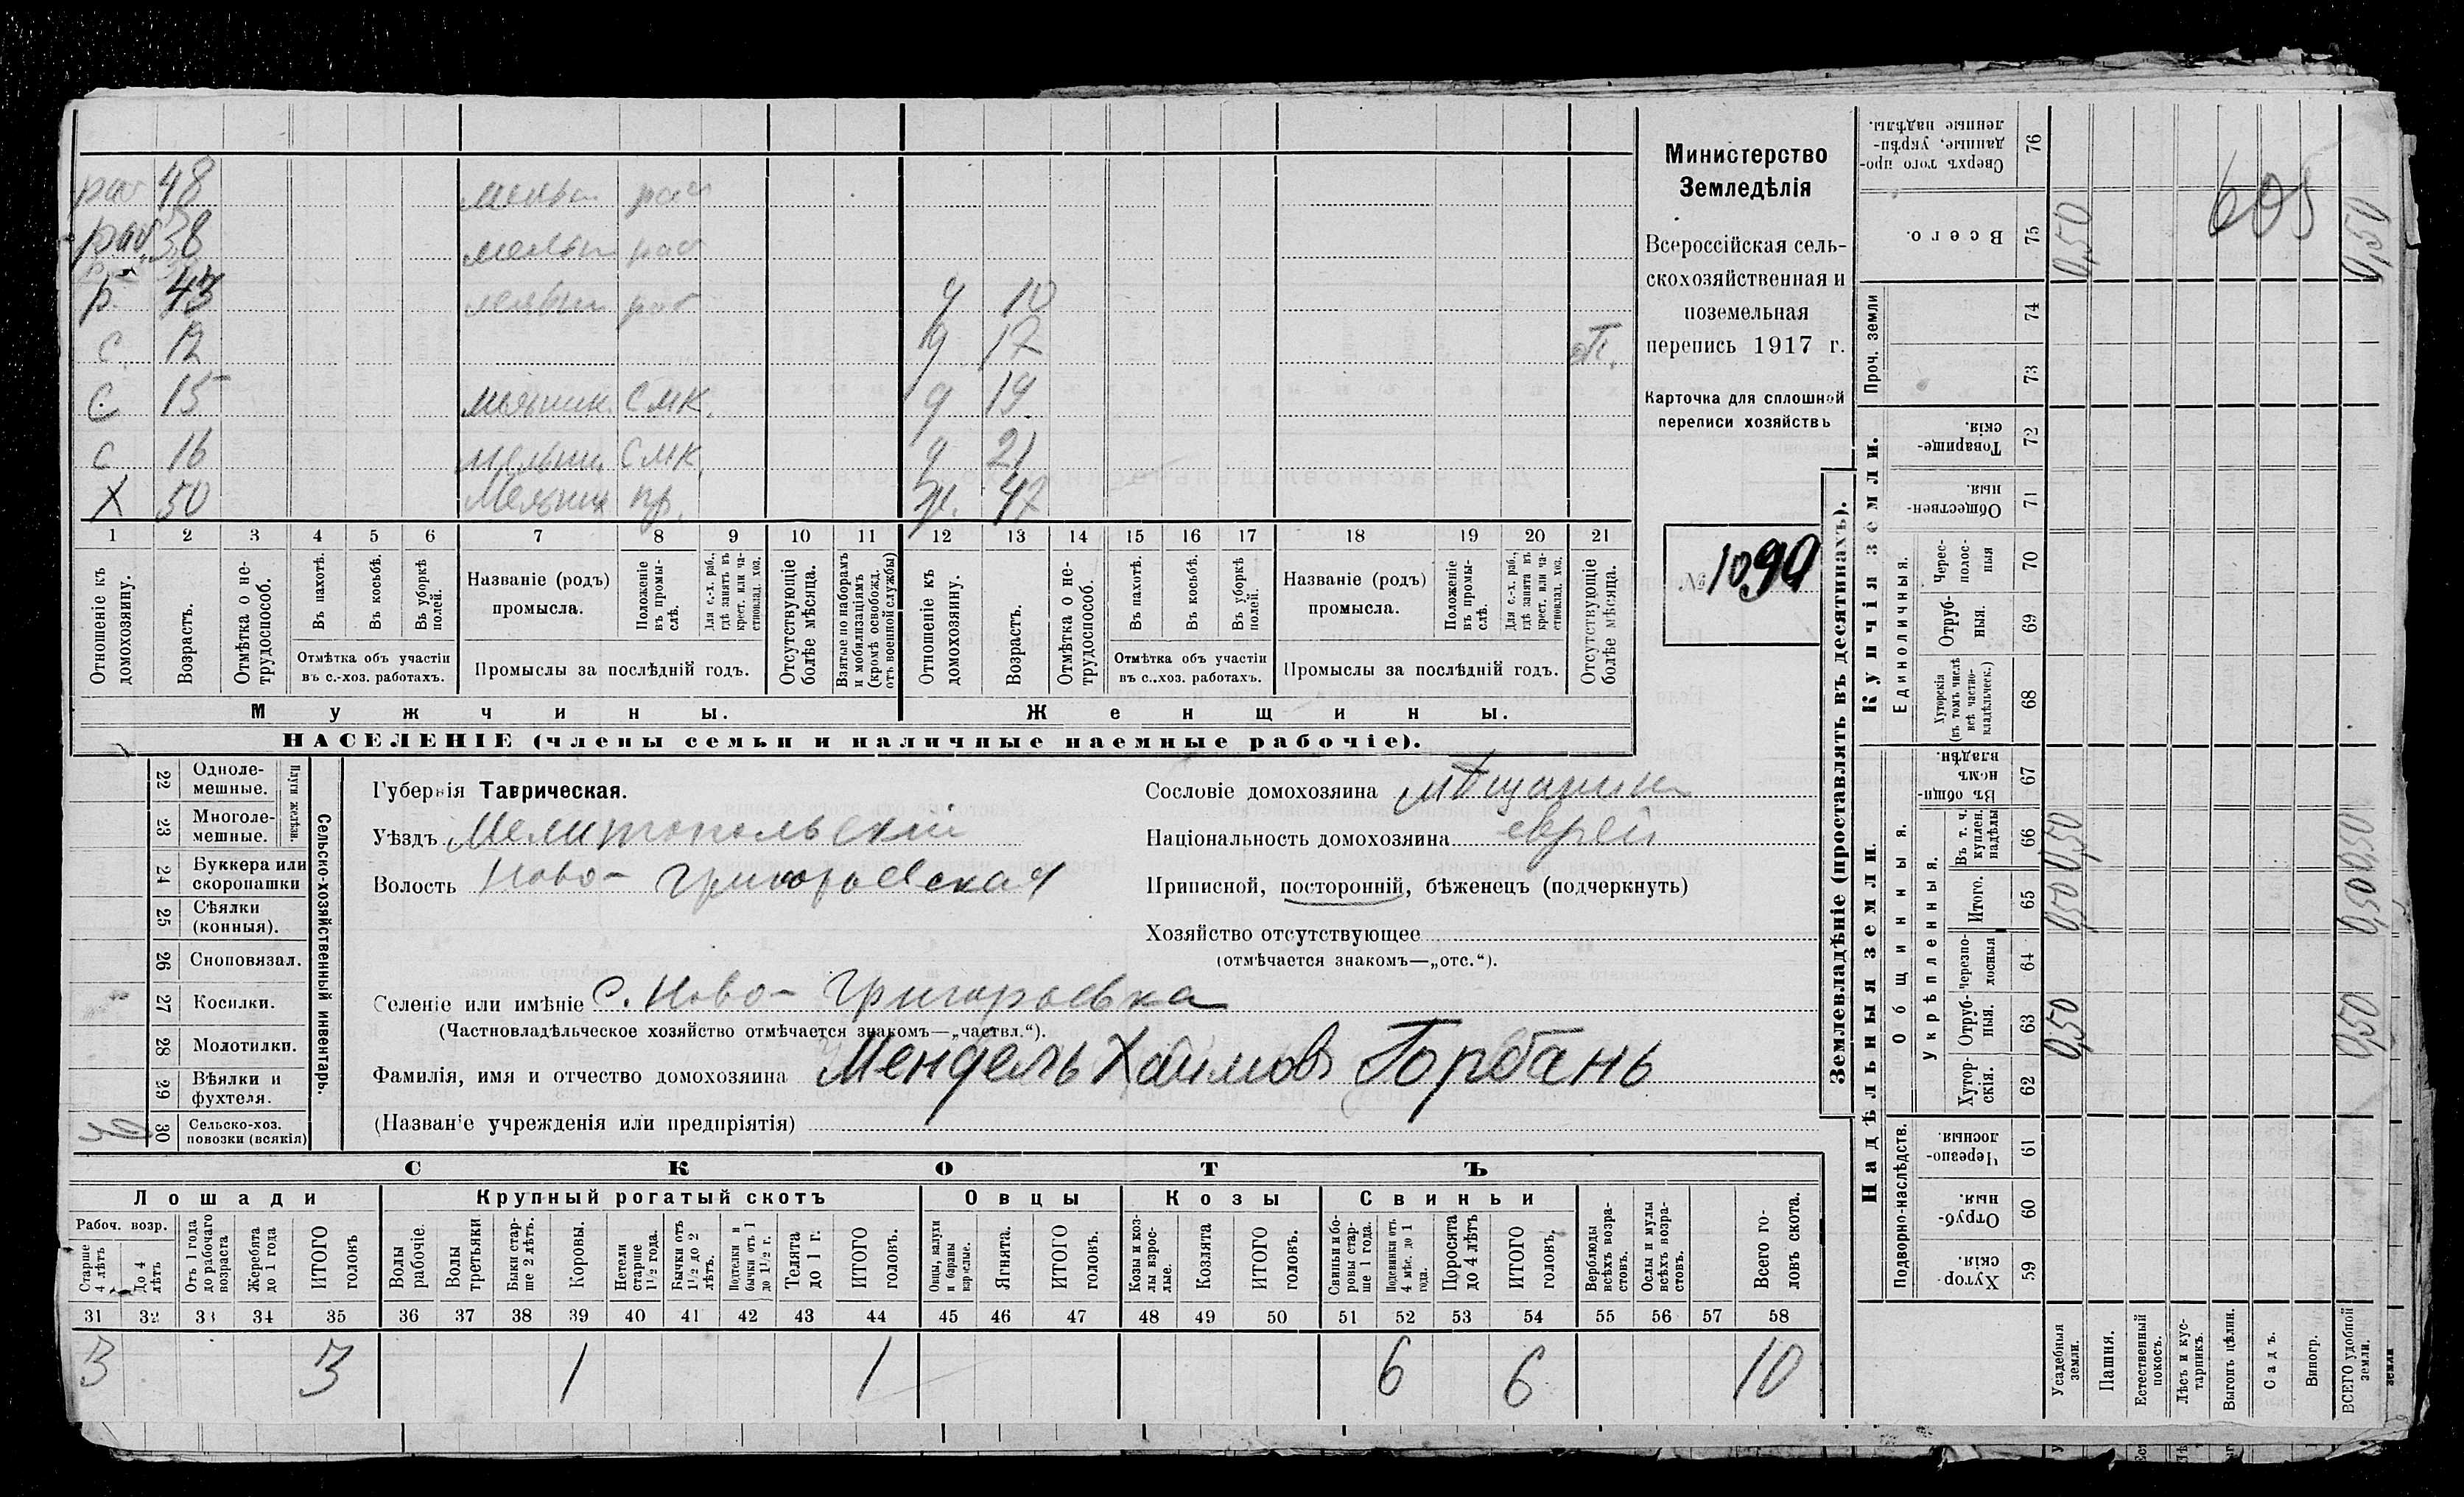 раб 48 мельн раб
раб. 38 мельн раб
р. 43 мельн раб д 10
с 12 д 17 от.
с 15 мельник. СМК. д 19
с 16 мельни. СМК. д 21
Х 50 Мельник пр. ж. 47
1 2 3 4 5 6 7 8 9 10 11 12 13 14 15 16 17 18 19 20 21
Отношеніе къ домохозяину.
Возрастъ.
Отмѣтка о не-трудоспособ.
Въ пахотѣ.
Въ косьбѣ.
Въ уборкѣ полей.
Отмѣтка объ участіи
въ с.-хоз. работахъ.
Названіе (родъ)
промысла.
Положеніе въ промы-слѣ.
Для с.-х. раб., гдѣ занятъ въ крест. или ча-стновлад. хоз.
Промыслы за послѣдній годъ.
Отсутствующіе болѣе мѣсяца.
Взятые по наборамъ и мобилизаціямъ (кромѣ освобожд. отъ военной службы)
Отношеніе къ домохозяину.
Возрастъ.
Отмѣтка о не-трудоспособ.
Въ пахотѣ.
Въ косьбѣ.
Въ уборкѣ полей.
Отмѣтка объ участіи
въ с..хоз. работахъ.
Названіе (родъ)
промысла.
Положеніе въ промы-слѣ.
Для с.-х. раб., гдѣ занята въ крест. или ча-стновлад. хоз.
Промыслы за послѣдній годъ.
Отсутствующіе болѣе мѣсяца.
Мужчины.
Женщины.
НАСЕЛЕНІЕ (члены семьи и наличные наемные рабочіе).
Министерство
Земледѣлія
Всероссійская сель-
скохозяйственная и
поземельная
перепись 1917 г.
Карточка для сплошной
переписи хозяйствъ
№ 1090
Сельско-хозяйственный инвентарь.
Плуги желѣзн.
22 Одноле-мешные.
23 Многоле-мешные.
24 Буккера или скоропашки
25 Сѣялки (конныя).
26 Сноповязал.
27 Косилки.
28 Молотилки.
29 Вѣялки и фухтеля.
30 Сельско-хоз. повозки (всякія)
Губернія Таврическая.
Уѣздъ Мелитопольскій
Волость Ново-Григорьевская
Сословіе домохозяина мѣщанин
Національность домохозяина еврей
Приписной, посторонній, бѣженецъ (подчеркнуть)
Хозяйство отсутствующее
(отмѣчается знакомъ—„отс.“).
Селеніе или имѣніе С. Ново-Григорьевка
(Частновладѣльческое хозяйство отмѣчается знакомъ—„частвл.“).
Фамилія, имя и отчество домохозяина Мендель Хаимовъ Горбань
(Названіе учрежденія или предпріятія)
СКОТЪ
Лошади
Крупный рогатый скотъ
Овцы
Козы
Свиньи
Рабоч. возр.
Старше 4 лѣтъ
До 4 лѣтъ
Отъ 1 года до рабочаго возраста
Жеребята до 1 года
ИТОГО головъ
Волы рабочіе.
Волы третьяки
Быки стар-ше 2 лѣтъ.
Коровы.
Нетели старше 1½ года.
Бычки отъ 1½ до 2 лѣтъ.
Подтелки и бычки отъ 1 до 1½ г.
Телята до 1 г.
ИТОГО головъ.
Овцы, валухи и бараны взрослые.
Ягнята.
ИТОГО головъ.
Козы и коз-лы взрос-лые.
Козлята
ИТОГО головъ.
Свиньи и бо-ровы стар-ше 1 года.
Подсвинки отъ 4 мѣс. до 1 года.
Поросята до 4 лѣтъ
ИТОГО головъ.
Верблюды всѣхъ возра-стовъ.
Ослы и мулы всѣхъ возра-стовъ.
Всего го-ловъ скота.
31 32 33 34 35 36 37 38 39 40 41 42 43 44 45 46 47 48 49 50 51 52 53 54 55 56 57 58
3 3 1 1 6 6 10
Землевладѣніе (проставлять въ десятинахъ).
Надѣльныя земли.
Купчія земли.
Проч. земли
Подворно-наслѣдств.
Общинныя.
Укрѣпленныя.
Единоличныя.
Сверхъ того про-данные, укрѣп-ленные надѣлы. 76
Всего. 75
74
73
Товарище-скія. 72
Обществен-ныя. 71
Черес-полос-ныя 70
Отруб-ныя. 69
Хуторскія (въ томъ числѣ всѣ частно-владѣльческ.) 68
Въ общи-номъ владѣн. 67
Въ т. ч. куплен. надѣлы 66
Итого. 65
черезпо-лосныя 64
Отруб-ныя. 63
Хутор-скія. 62
Черезпо-лосныя. 61
Отруб-ныя. 60
Хутор-скія. 59
Усадебныя земли.
Пашня.
Естественный покосъ.
Лѣсъ и кус-тарникъ.
Выгонъ цѣлин.
Садъ.
Виногр.
ВСЕГО удобной земли.
земли
0,50 605 0,50
0,50 0,50
0,50 0,50
0,50 0,50